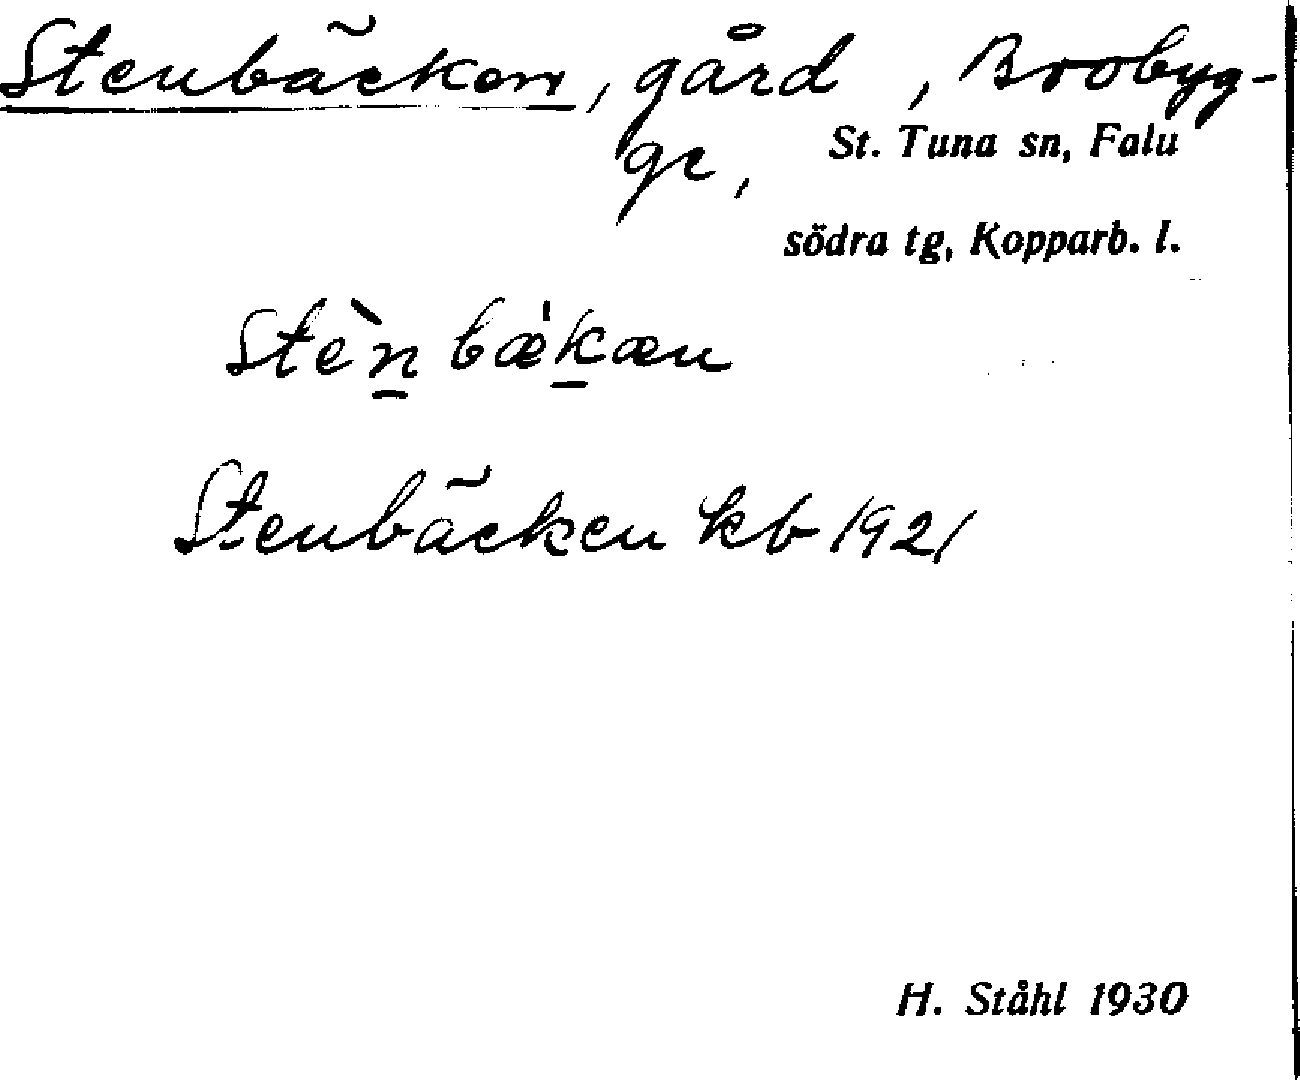 Stenbäcken, gård , Brobyg-
ge,
St. Tuna sn, Falu
södra tg, Kopparb. l.
stèn bæ̀kæn
Stenbäcken kb 1921
H. Ståhl 1930